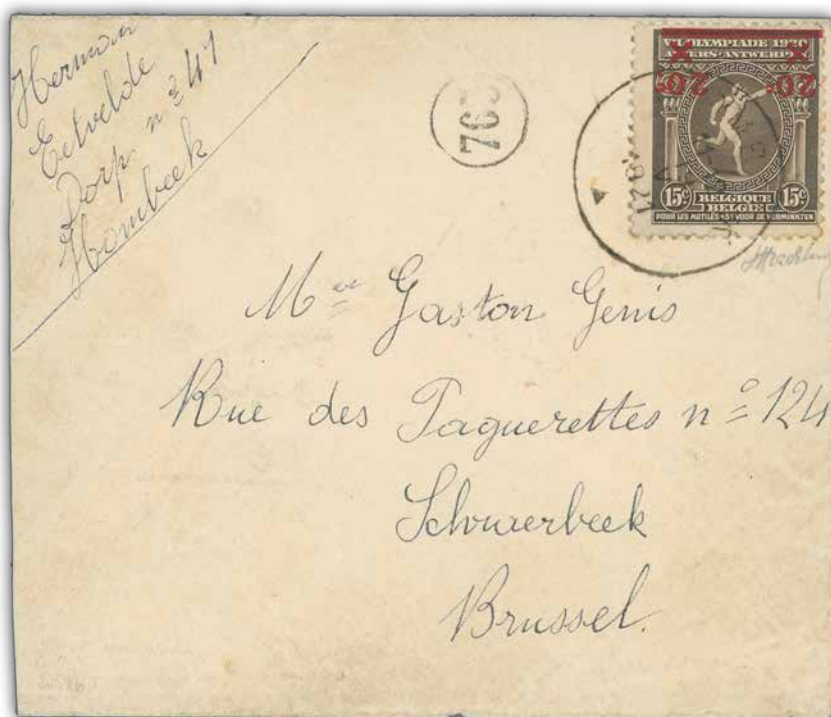 Herman
Eetvelde
Dorp. nº 41
Hombeek
763
VIIE OLYMPIADE 1920
ANVERS-ANTWERPEN
20c 20c
15c BELGIQUE 15c
BELGIË
POUR LES MUTILÉS+5c VOOR DE VERMINKTEN
Mme Gaston Genis
Rue des Paquerettes nº 124
Schaerbeek
Brussel.